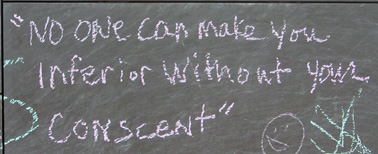 "NO ONE Can make You
Inferior Without your
Conscent"